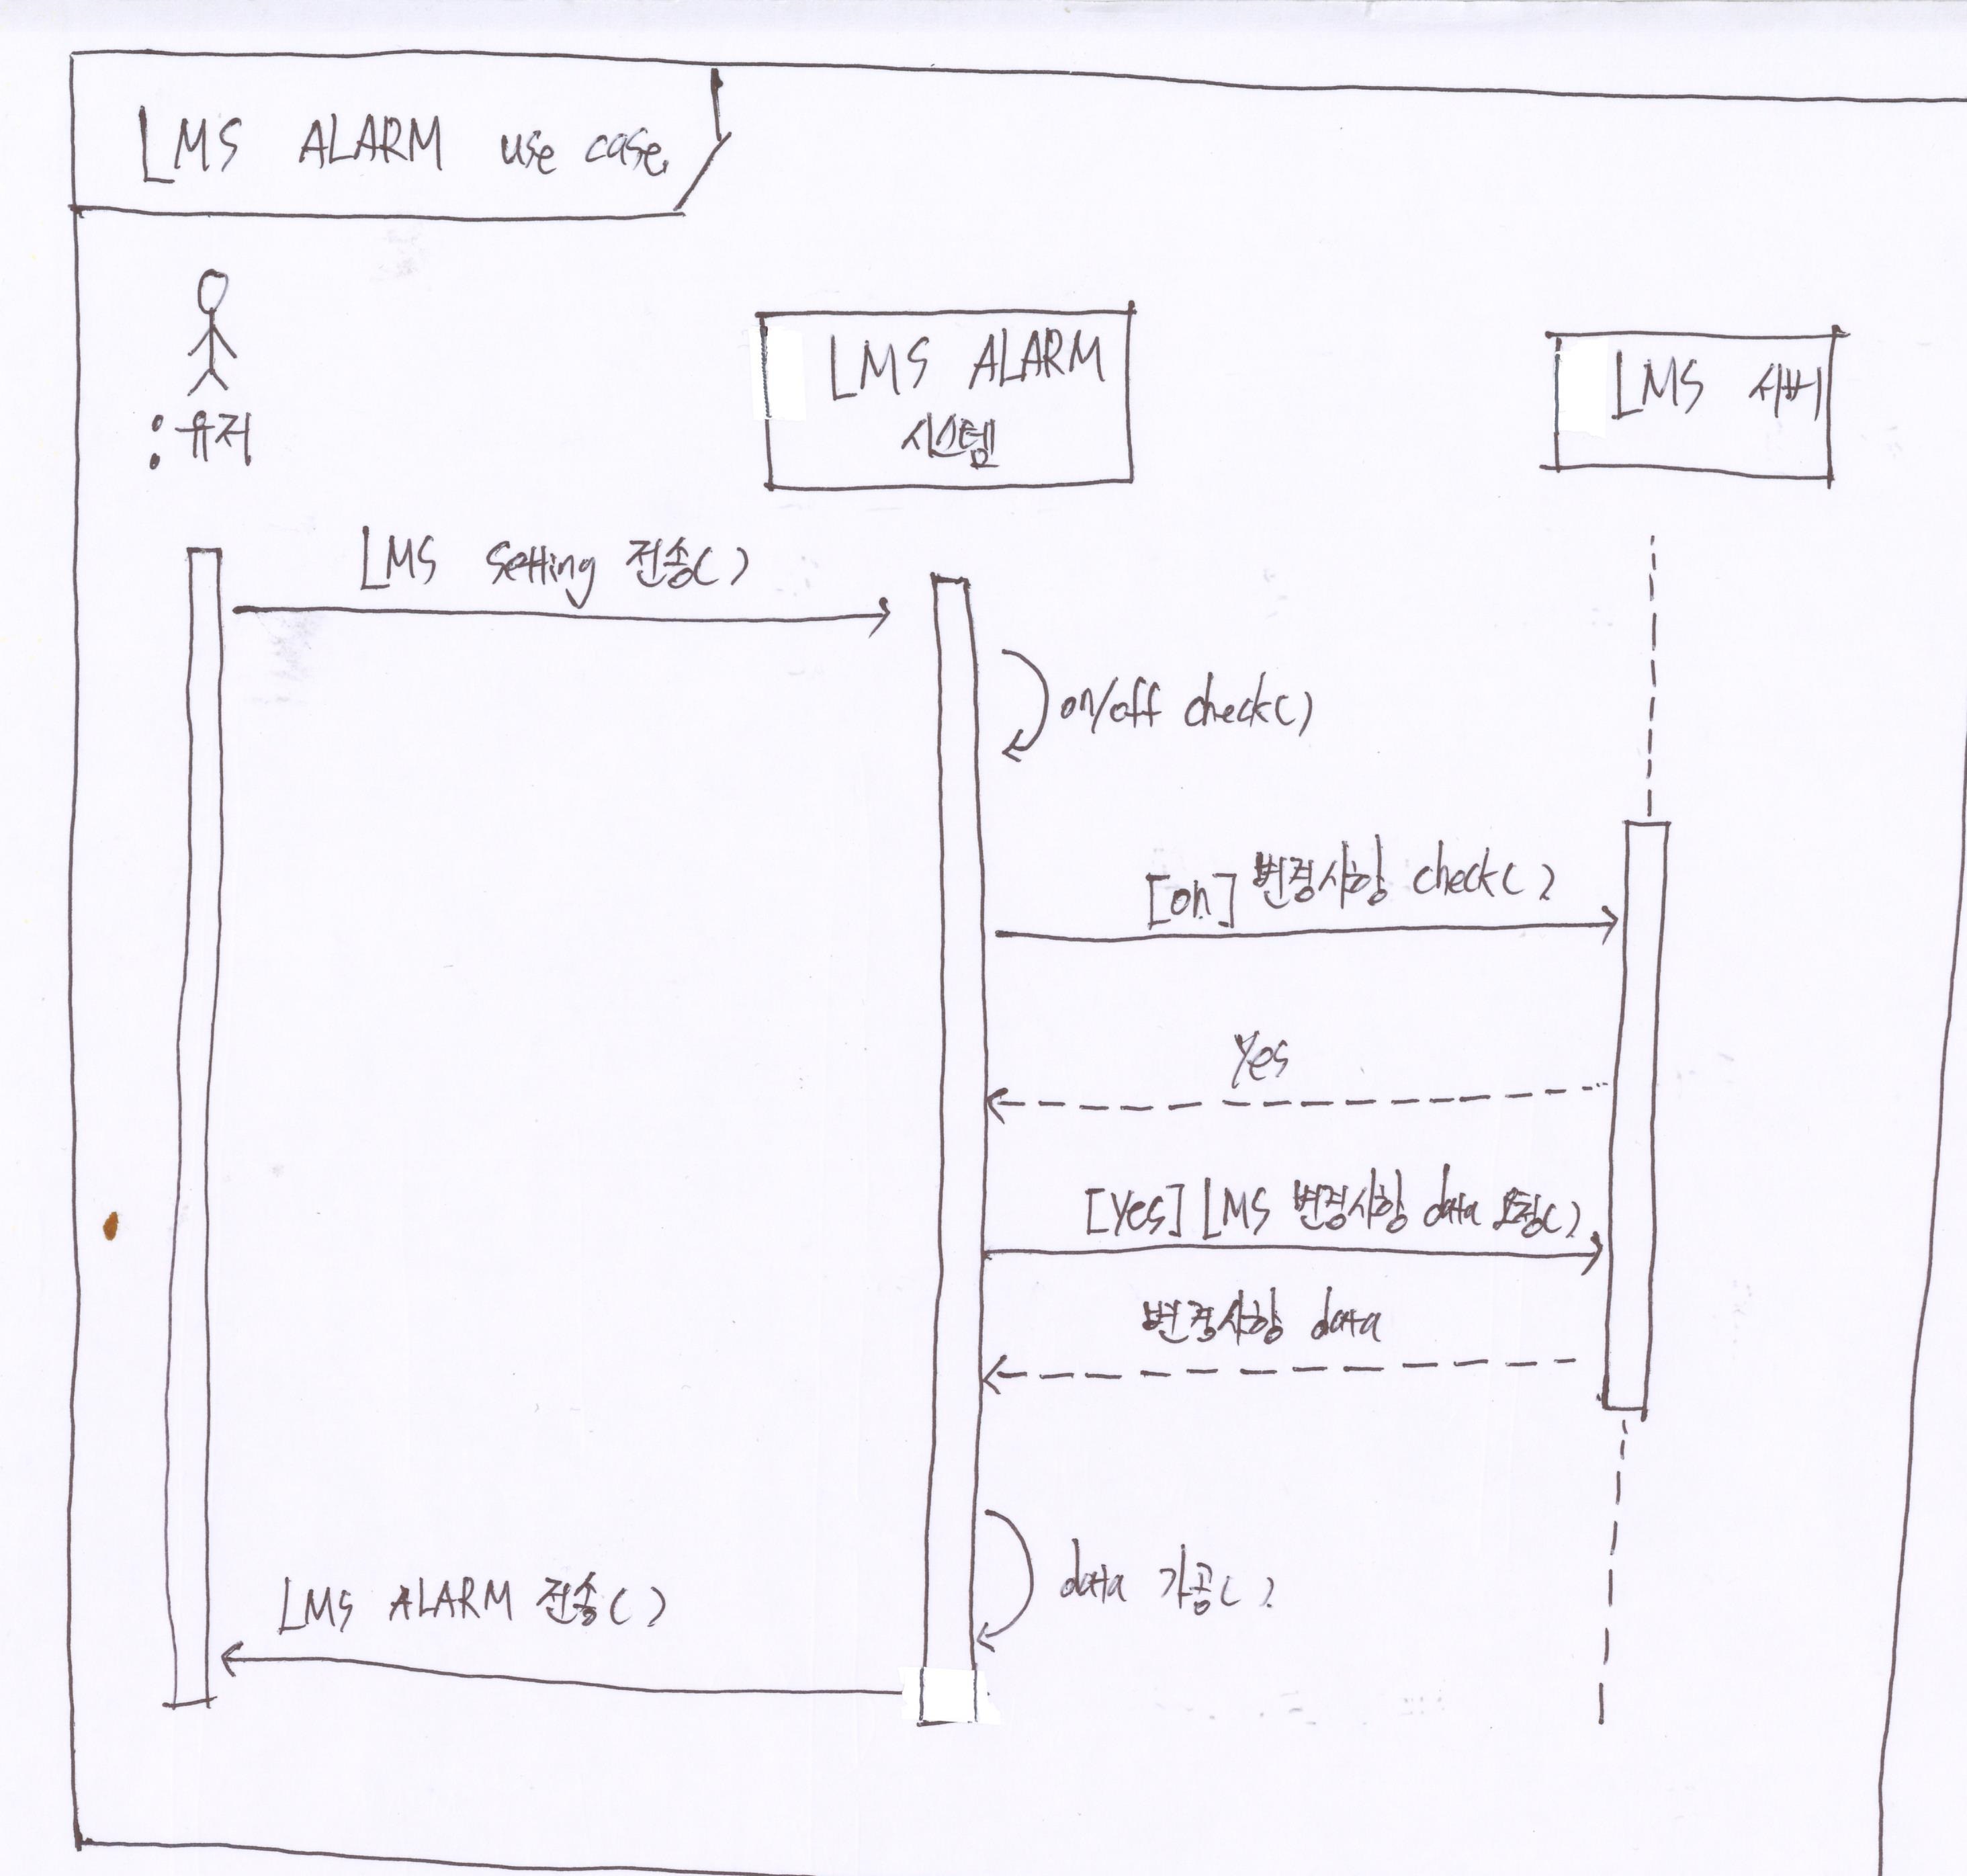 LMS ALARM use case
:유저
LMS ALARM
시스템
LMS 서버
LMS setting 전송()
on/off check()
[on] 변경사항 check()
Yes
[Yes] LMS 변경사항 data 요청()
변경사항 data
data 가공()
LMS ALARM 전송()